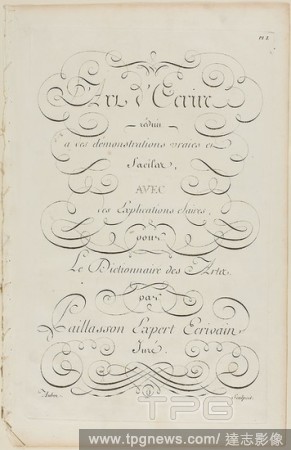 Art d'Ecrire
réduit
a des demonstrations vraies et
faciles,
AVEC
des Explications claires,
pour
Le Dictionnaire des Arts.
par
Paillasson Expert Ecrivain
Juré.
Aubin
Sculpsit.
TPG
www.tpgnews.com/達志影像